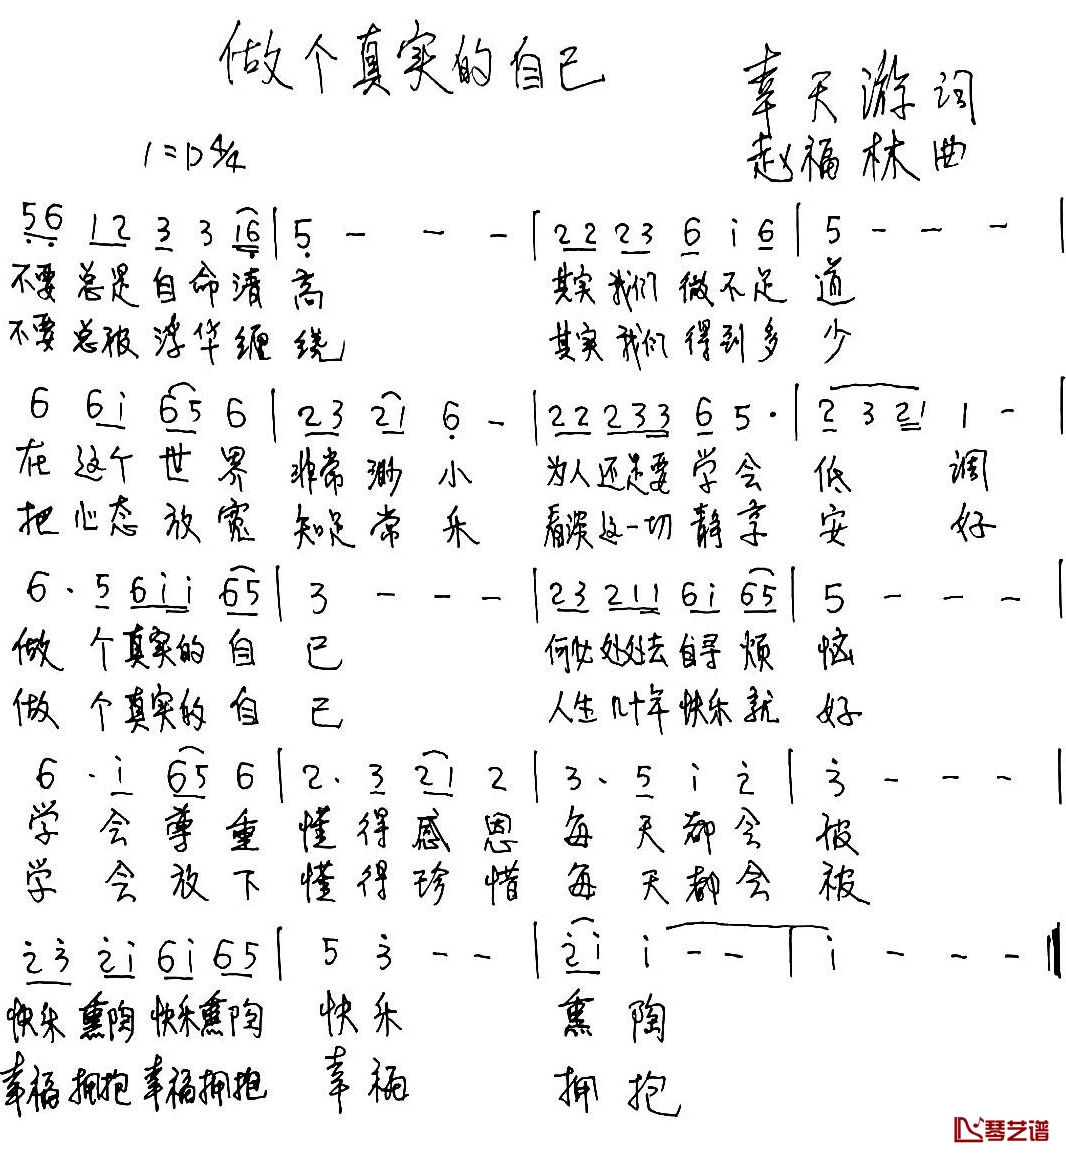 做个真实的自己
辛天游词
赵福林曲
1=D 4/4
56 12 3 3 16 | 5 - - - | 22 23 6 i 6 | 5 - - - |
不要总是自命清高 其实我们微不足道
不要总被浮华缠绕 其实我们得到多少
6 6i 65 6 | 23 21 6 - | 22 233 6 5· | 2 3 21 1 - |
在这个世界非常渺小 为人还是要学会低调
把心态放宽知足常乐 看淡这一切静享安好
6· 5 6ii 65 | 3 - - - | 23 211 6i 65 | 5 - - - |
做个真实的自己 何必处处去自寻烦恼
做个真实的自己 人生几十年快乐就好
6· i 65 6 | 2· 3 21 2 | 3· 5 i 2 | 3 - - - |
学会尊重懂得感恩每天都会被
学会放下懂得珍惜每天都会被
23 2i 6i 65 | 5 3 - - | 2i i - - | i - - - ‖
快乐熏陶快乐熏陶快乐熏陶
幸福拥抱幸福拥抱幸福拥抱
琴艺谱